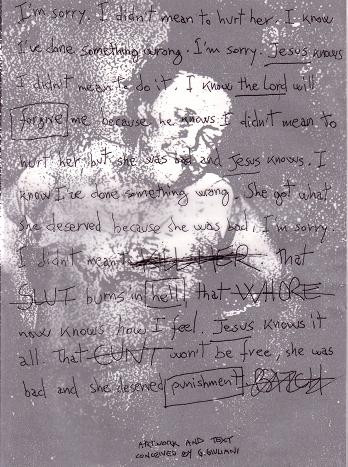 I'm sorry. I didn't mean to hurt her. I know
I've done something wrong. I'm sorry. Jesus knows
I didn't mean to do it. I know the Lord will
forgive me because he knows I didn't mean to
hurt her, but she was bad and Jesus knows. I
know I've done something wrong. She got what
she deserved because she was bad. I'm sorry.
I didn't mean t KILL HER That
SLUT burns in hell, that WHORE
now knows how I feel. Jesus knows it
all. That CUNT won't be free, she was
bad and she deserved punishment. BITCH
ARTWORK AND TEXT
CONCEIVED BY G. GIULIANI